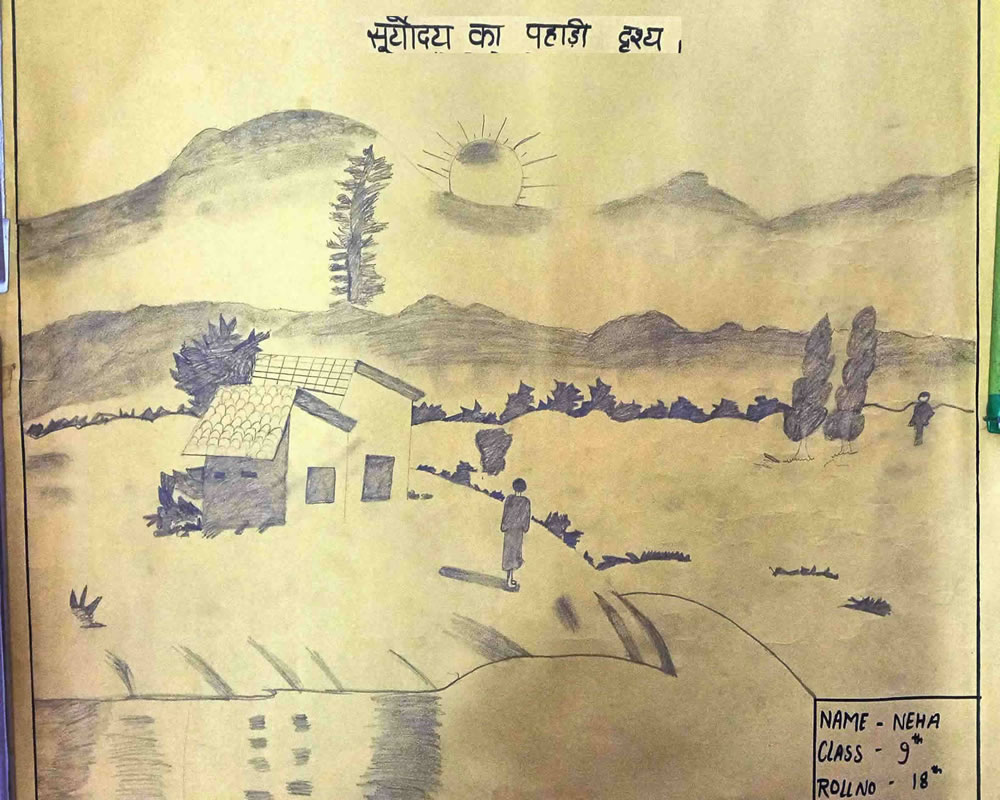 सूर्योदय का पहाड़ी दृश्य।
NAME - NEHA
CLASS - 9th
ROLL NO - 18th